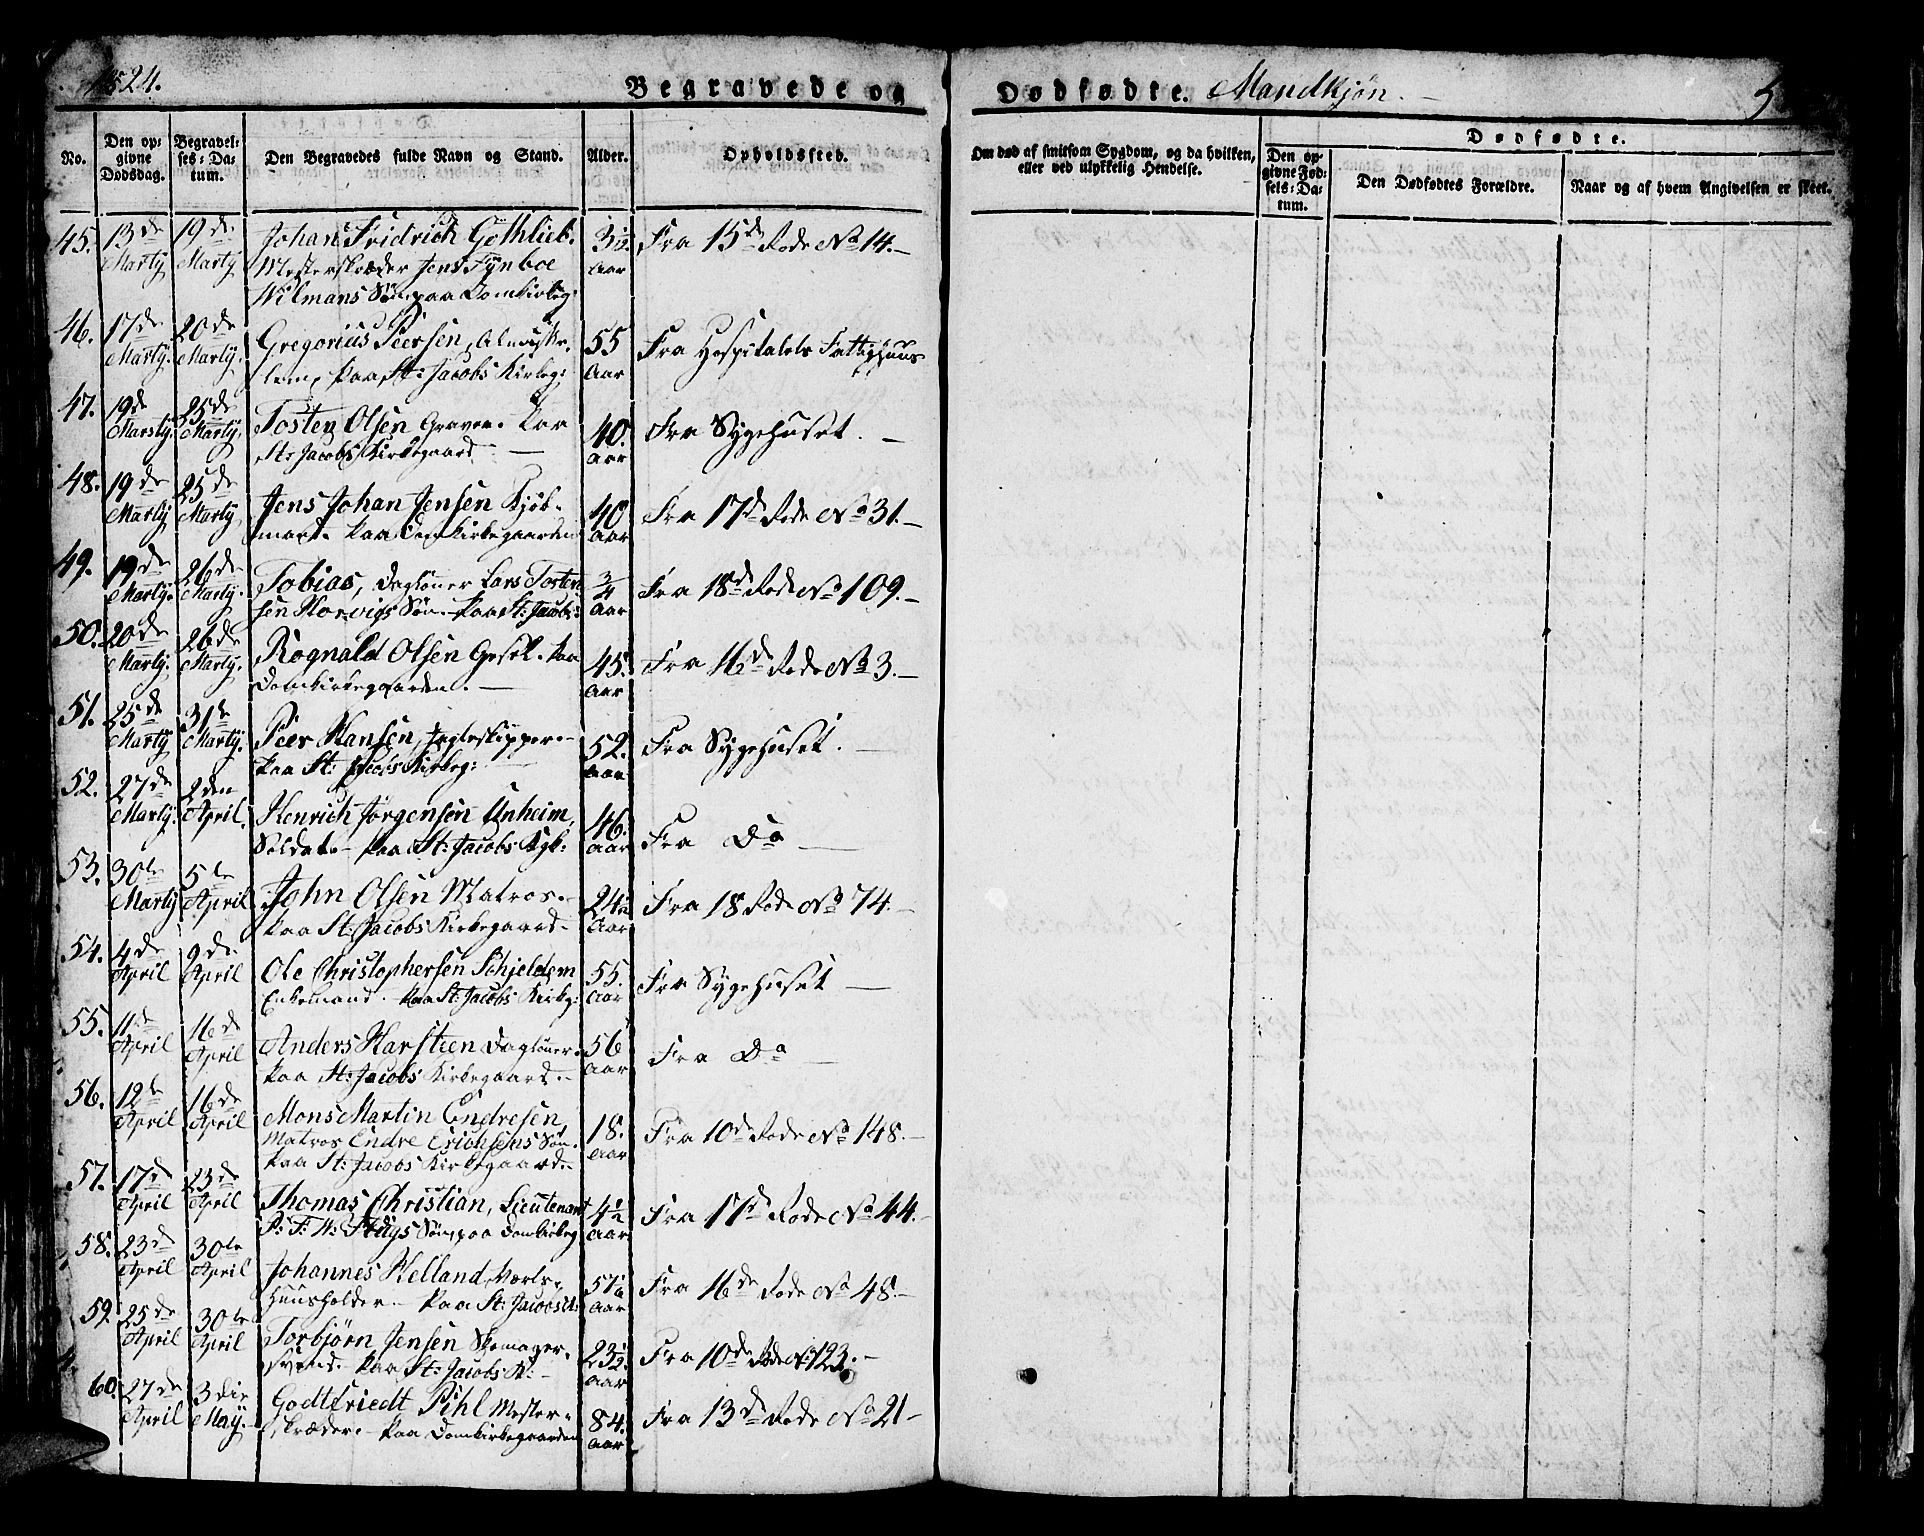 1824.
Begravede og Dødfødte. Mandkjøn.
5
No.
Den opgivne Dødsdag.
Begravelses-Datum.
Den Begravedes fulde Navn og Stand.
Alder.
Opholdssted.
Om død af smitsom Sygdom, og da hvilken, eller ved ulykkelig Hendelse.
Dødfødte.
Den opgivne Fødsels-Datum.
Den Dødfødtes Forældre.
Naar og af hvem Angivelsen er skeet.
45. 13de Martij 19de Martij Johan Fridrich Gothlieb. Fra 15de Rode No 14.
Mesterskræder Jens Fynboe Aar
Wilmans Søn, paa Domkirkeg:
46. 17de Martij. 20de Martij. Gregorius Peersen, Almisse- 55 Fra Hospitalets Fattighuus
lem, paa St: Jacobs Kirkeg: Aar
47. 19de Martij. 25de Martij. Tosten Olsen Graver. Paa 40. Fra Sygehuset.
St: Jacobs Kirkegaard Aar
48. 19de Martij 25de Martij Jens Johan Jensen Kjøb- 40 Fra 17de Rode No 31.
mand. Paa Domkirkegaarden Aar
49. 19de Martij. 26de Martij. Tobias, Dagløner Lars Tosten- 3/4 Fra 18de Rode No 109.
sen Norvigs Søn. Paa St: Jacobs: Aar
50. 20de Martij. 26de Martij. Rognald Olsen Gesel. Paa 45. Fra 16de Rode No 3.
Domkirkegaarden. Aar
51. 25de Martij 31te Martij. Peer Hansen, Jagteskipper. 52. Fra Sygehuset.
Paa St: Jacobs Kirkeg: Aar
52. 27de Martij. 2den April. Henrich Jørgensen Unheim, 46. Fra Do
Soldat. Paa St: Jacobs Kgb: Aar
53. 30te Martij 5te April John Olsen Matros. 24 1/2 Fra 18 Rode No 74.
Paa St: Jacobs Kirkegaard Aar
54. 4de April 9de April Ole Christophersen Schjeldem 55. Fra Sygehuset
Enkemand. Paa St: Jacobs Kirkg: Aar
55. 11de April 16de April Anders Harstien Dagløner. 56 Fra Do
Paa St: Jacobs Kirkegaard. Aar
56. 12te April 16de April Mons Martin Endresen, 18. Fra 10de Rode No 148.
Matros Endre Erichsens Søn. Aar
Paa St: Jacobs Kirkegaard.
57. 17de April 23de April Thomas Christian, Lieutenant 4 1/2 Fra 17de Rode No 44.
P: F: W: Stuys Søn, paa Domkirkeg Aar
58. 23de April 30te April Johannes Helland Værts- 57 1/2 Fra 16de Rode No 48.
huusholder. Paa St: Jacobs K: Aar
59. 25de April 30te April Torbjørn Jensen Skomager- 23 1/2 Fra 10de Rode No 123.
svend. Paa St: Jacobs K: Aar
60. 27de April 3die May. Godtfriedt Pihl Mester- 84. Fra 13de Rode No 21
skræder. Paa Domkirkegaarden Aar